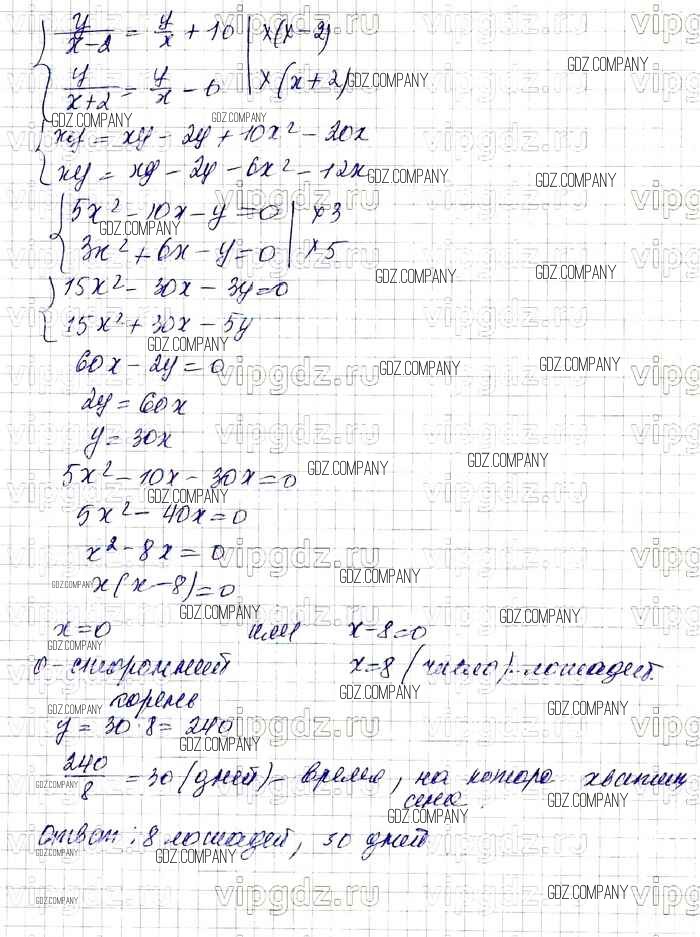 y/(x-2) = y/x + 10 | ×(x-2)
y/(x+2) = y/x - 6 | ×(x+2)
xy = xy - 2y + 10x² - 20x
xy = xy - 2y - 6x² - 12x
5x² - 10x - y = 0 | ×3
3x² + 6x - y = 0 | ×5
15x² - 30x - 3y = 0
15x² + 30x - 5y
60x - 2y = 0
2y = 60x
y = 30x
5x² - 10x - 30x = 0
5x² - 40x = 0
x² - 8x = 0
x(x-8) = 0
x = 0 или x-8=0
0 - сторонний x=8 (число) - лошадей
корень
y = 30·8 = 240
240/8 = 30 (дней) - время, на которо хватит
сена.
Ответ: 8 лошадей, 30 дней
vipgdz.ru
GDZ.COMPANY